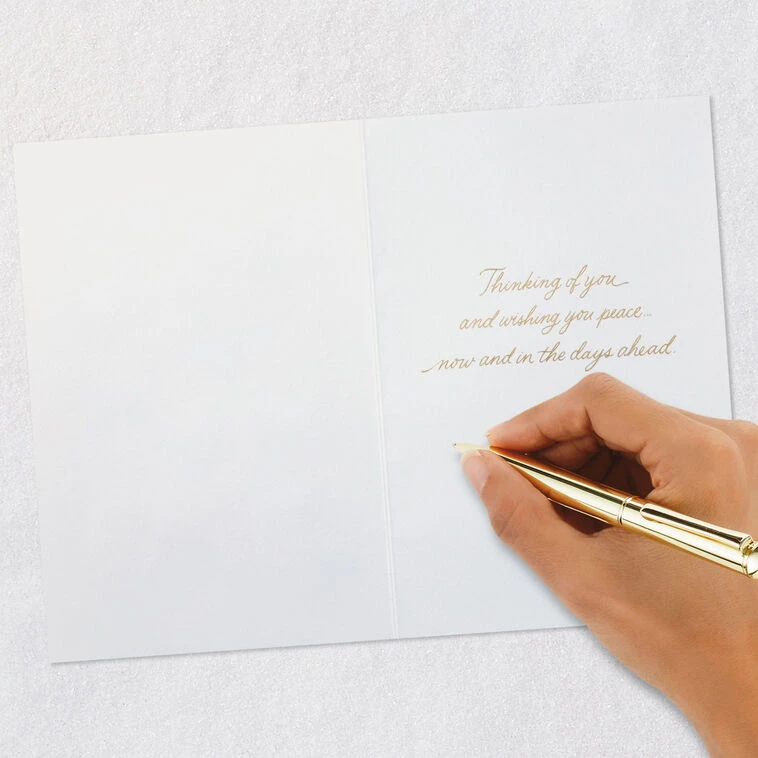 Thinking of you
and wishing you peace...
now and in the days ahead.